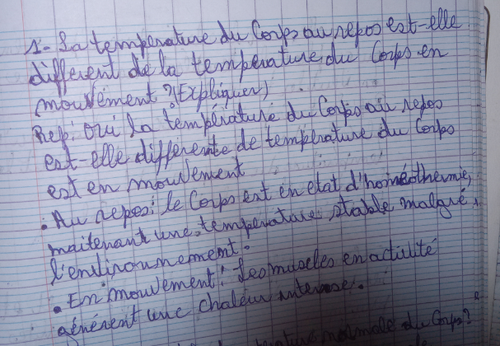 1- La température du Corps au repos est-elle
différent de la température du Corps en
mouvement ? (Expliquer)
Rep: oui la température du Corps au repos
est-elle differente de température du Corps
est en mouvement
• Au repos : le Corps est en etat d'homéothermie,
maitenant une temperature stable malgré
l'environnement.
• En mouvement : Les muscles en activité
génèrent une chaleur intense.
normale du Corps ?